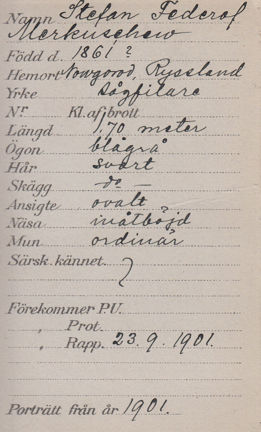 Namn Stefan Federof
Merkuschew
Född d. 1861 ?
Hemort Nowgorod, Ryssland
Yrke Sågfilare
Nr Kl. af brott
Längd 1,70 meter
Ögon blågrå
Hår svart
Skägg do
Ansigte ovalt
Näsa inåtböjd
Mun ordinär
Särsk. kännet.
Förekommer P.U.
" Prot.
" Rapp. 23. 9. 1901.
Porträtt från år 1901.